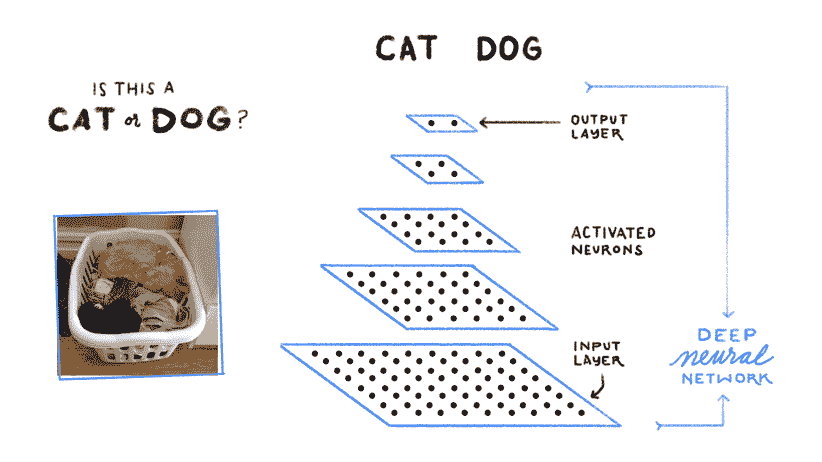 CAT DOG
IS THIS A
CAT or DOG?
OUTPUT
LAYER
ACTIVATED
NEURONS
INPUT
LAYER
DEEP
neural
NETWORK